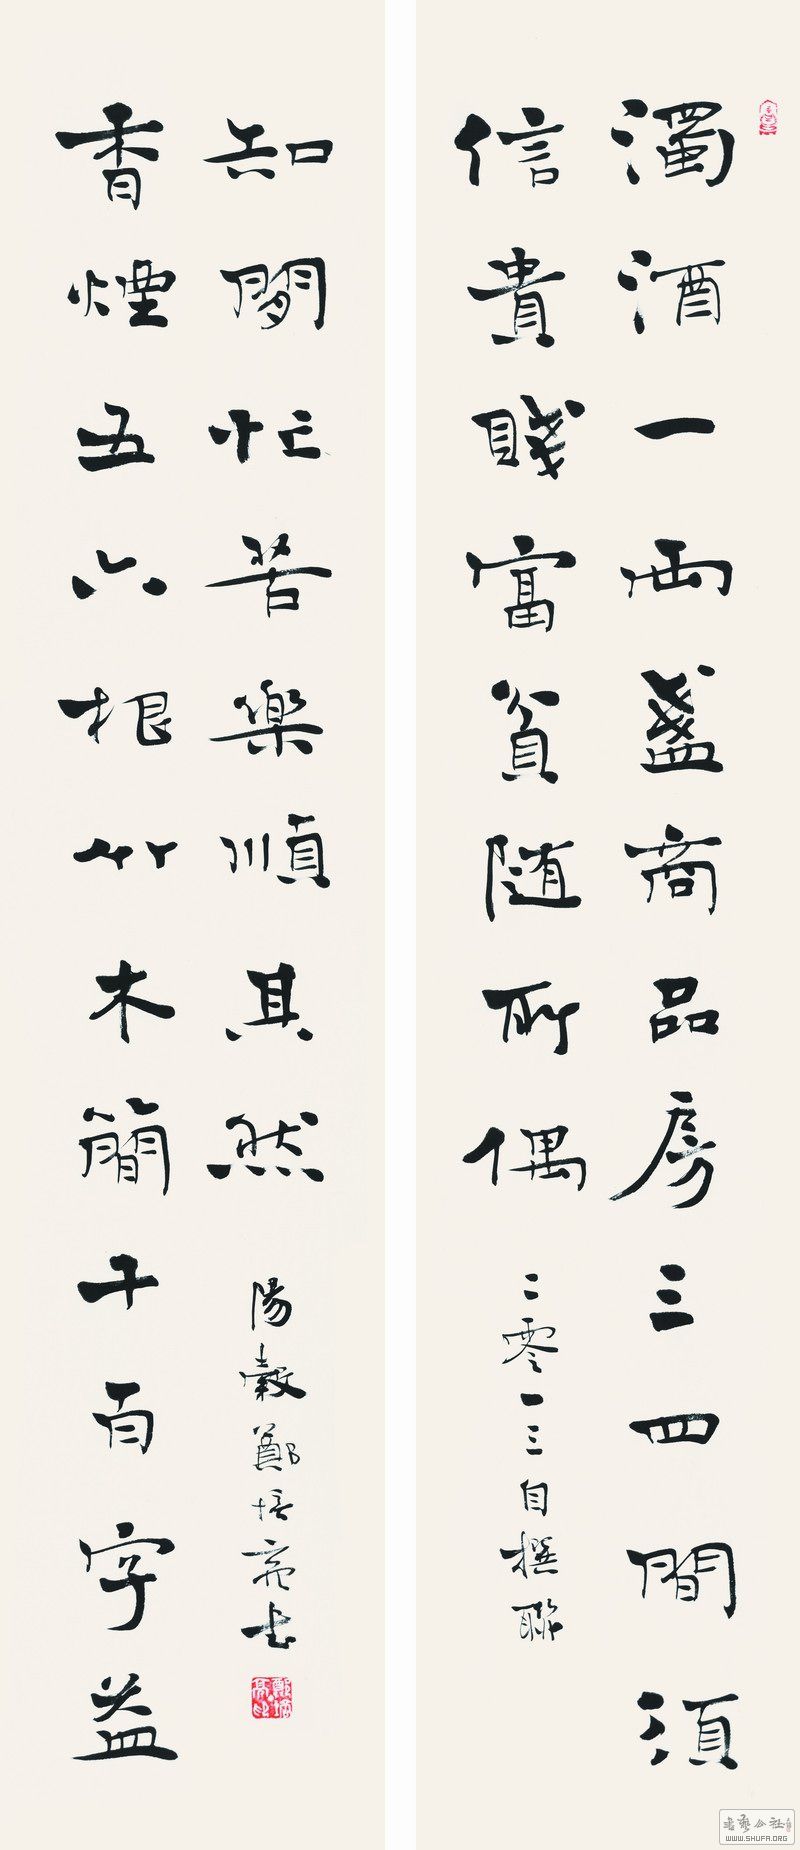 濁酒一兩盞商品房三四間須
信貴賤富貧随所偶
二零一三自撰聯
香煙五六根竹木簡千百字益
知閒忙苦樂順其然
陽穀鄭培亮书
WWW.SHUFA.ORG